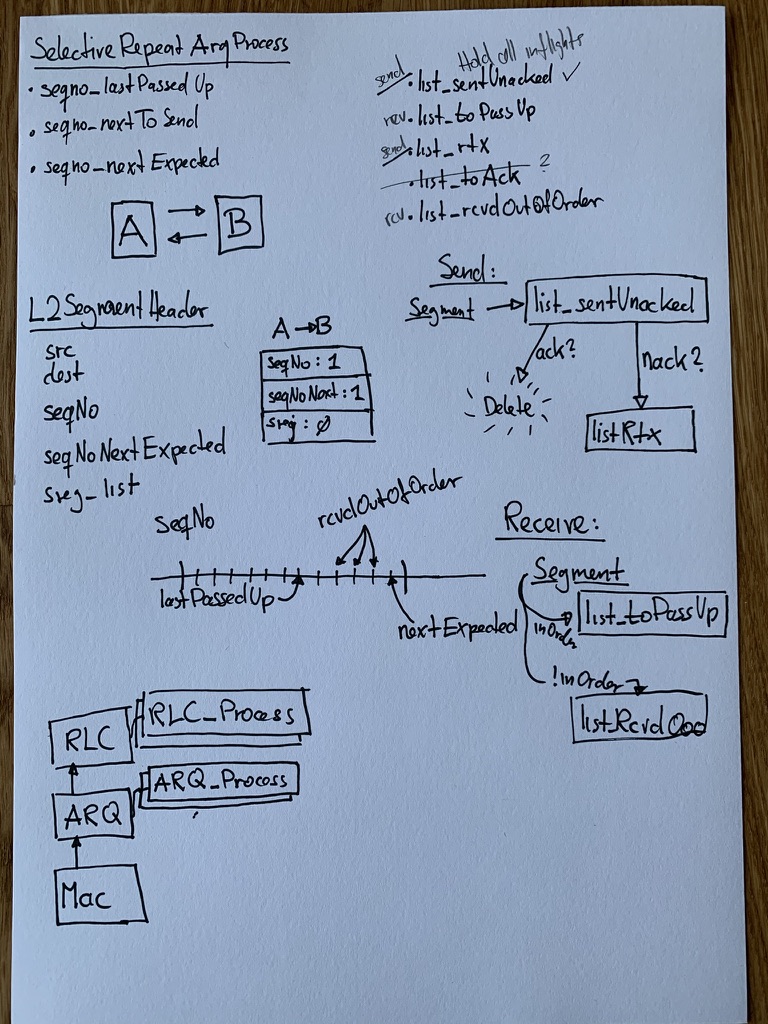 Selective Repeat Arq Process
• seqno_lastPassed Up
• seqno_nextTo Send
• seqno_next Expected
A
B
Hold all inflights
send • list_sentUnacked ✓
rcv. • list_to Pass Up
send • list_rtx
• list_to Ack ?
rcv. • list_rcvdOutOfOrder
L2 Segment Header
src
dest
seqNo
seqNoNextExpected
sreg_list
A → B
seqNo : 1
seqNoNext : 1
sreg : ∅
Send :
Segment → list_sentUnacked
ack?
nack?
Delete
listRtx
seqNo
rcvdOutOfOrder
lastPassedUp
nextExpected
Receive :
Segment
inOrder
list_toPassUp
!inOrder
listRcvdOoo
RLC
RLC_Process
ARQ
ARQ_Process
Mac